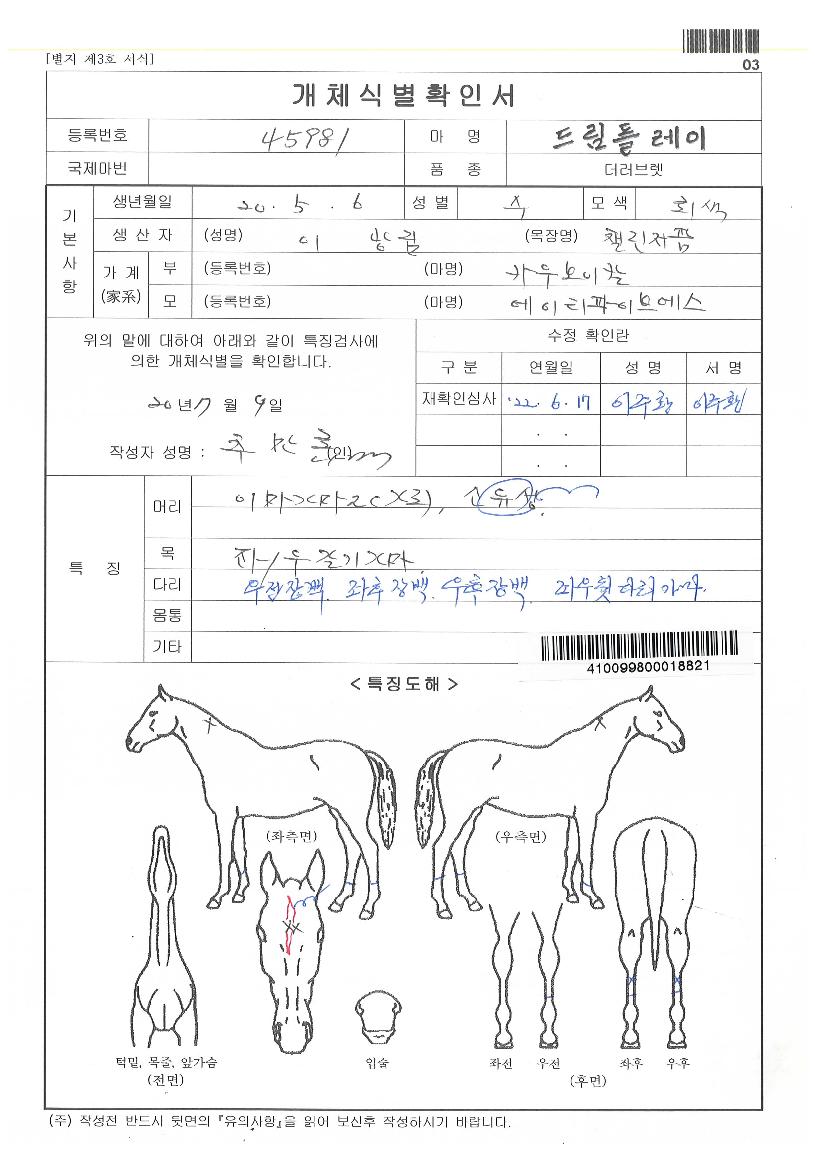 [별지 제3호 서식]
03
개체식별확인서
등록번호 45981 마 명 드림플레이
국제마번 품 종 더러브렛
기본사항
생년월일 20. 5. 6 성 별 수 모 색 회색
생 산 자 (성명) 이 (목장명) 챌린저팜
가 계 (家系) 부 (등록번호) (마명) 카우보이칼
모 (등록번호) (마명) 에이티파이브에스
위의 말에 대하여 아래와 같이 특징검사에
의한 개체식별을 확인합니다.
20년 7 월 9일
작성자 성명 : (인)
수정 확인란
구 분 연월일 성 명 서 명
재확인심사 '22. 6. 17 이주환 이주환
. .
. .
특 징
머리 유성
목 좌/우 줄기
다리 우전장백. 좌후장백. 우후장백. 좌우뒷다리가마.
몸통
기타
410099800018821
< 특징도해 >
(좌측면) (우측면)
턱밑, 목줄, 앞가슴 입술 좌전 우전 좌후 우후
(전면) (후면)
(주) 작성전 반드시 뒷면의 『유의사항』을 읽어 보신후 작성하시기 바랍니다.